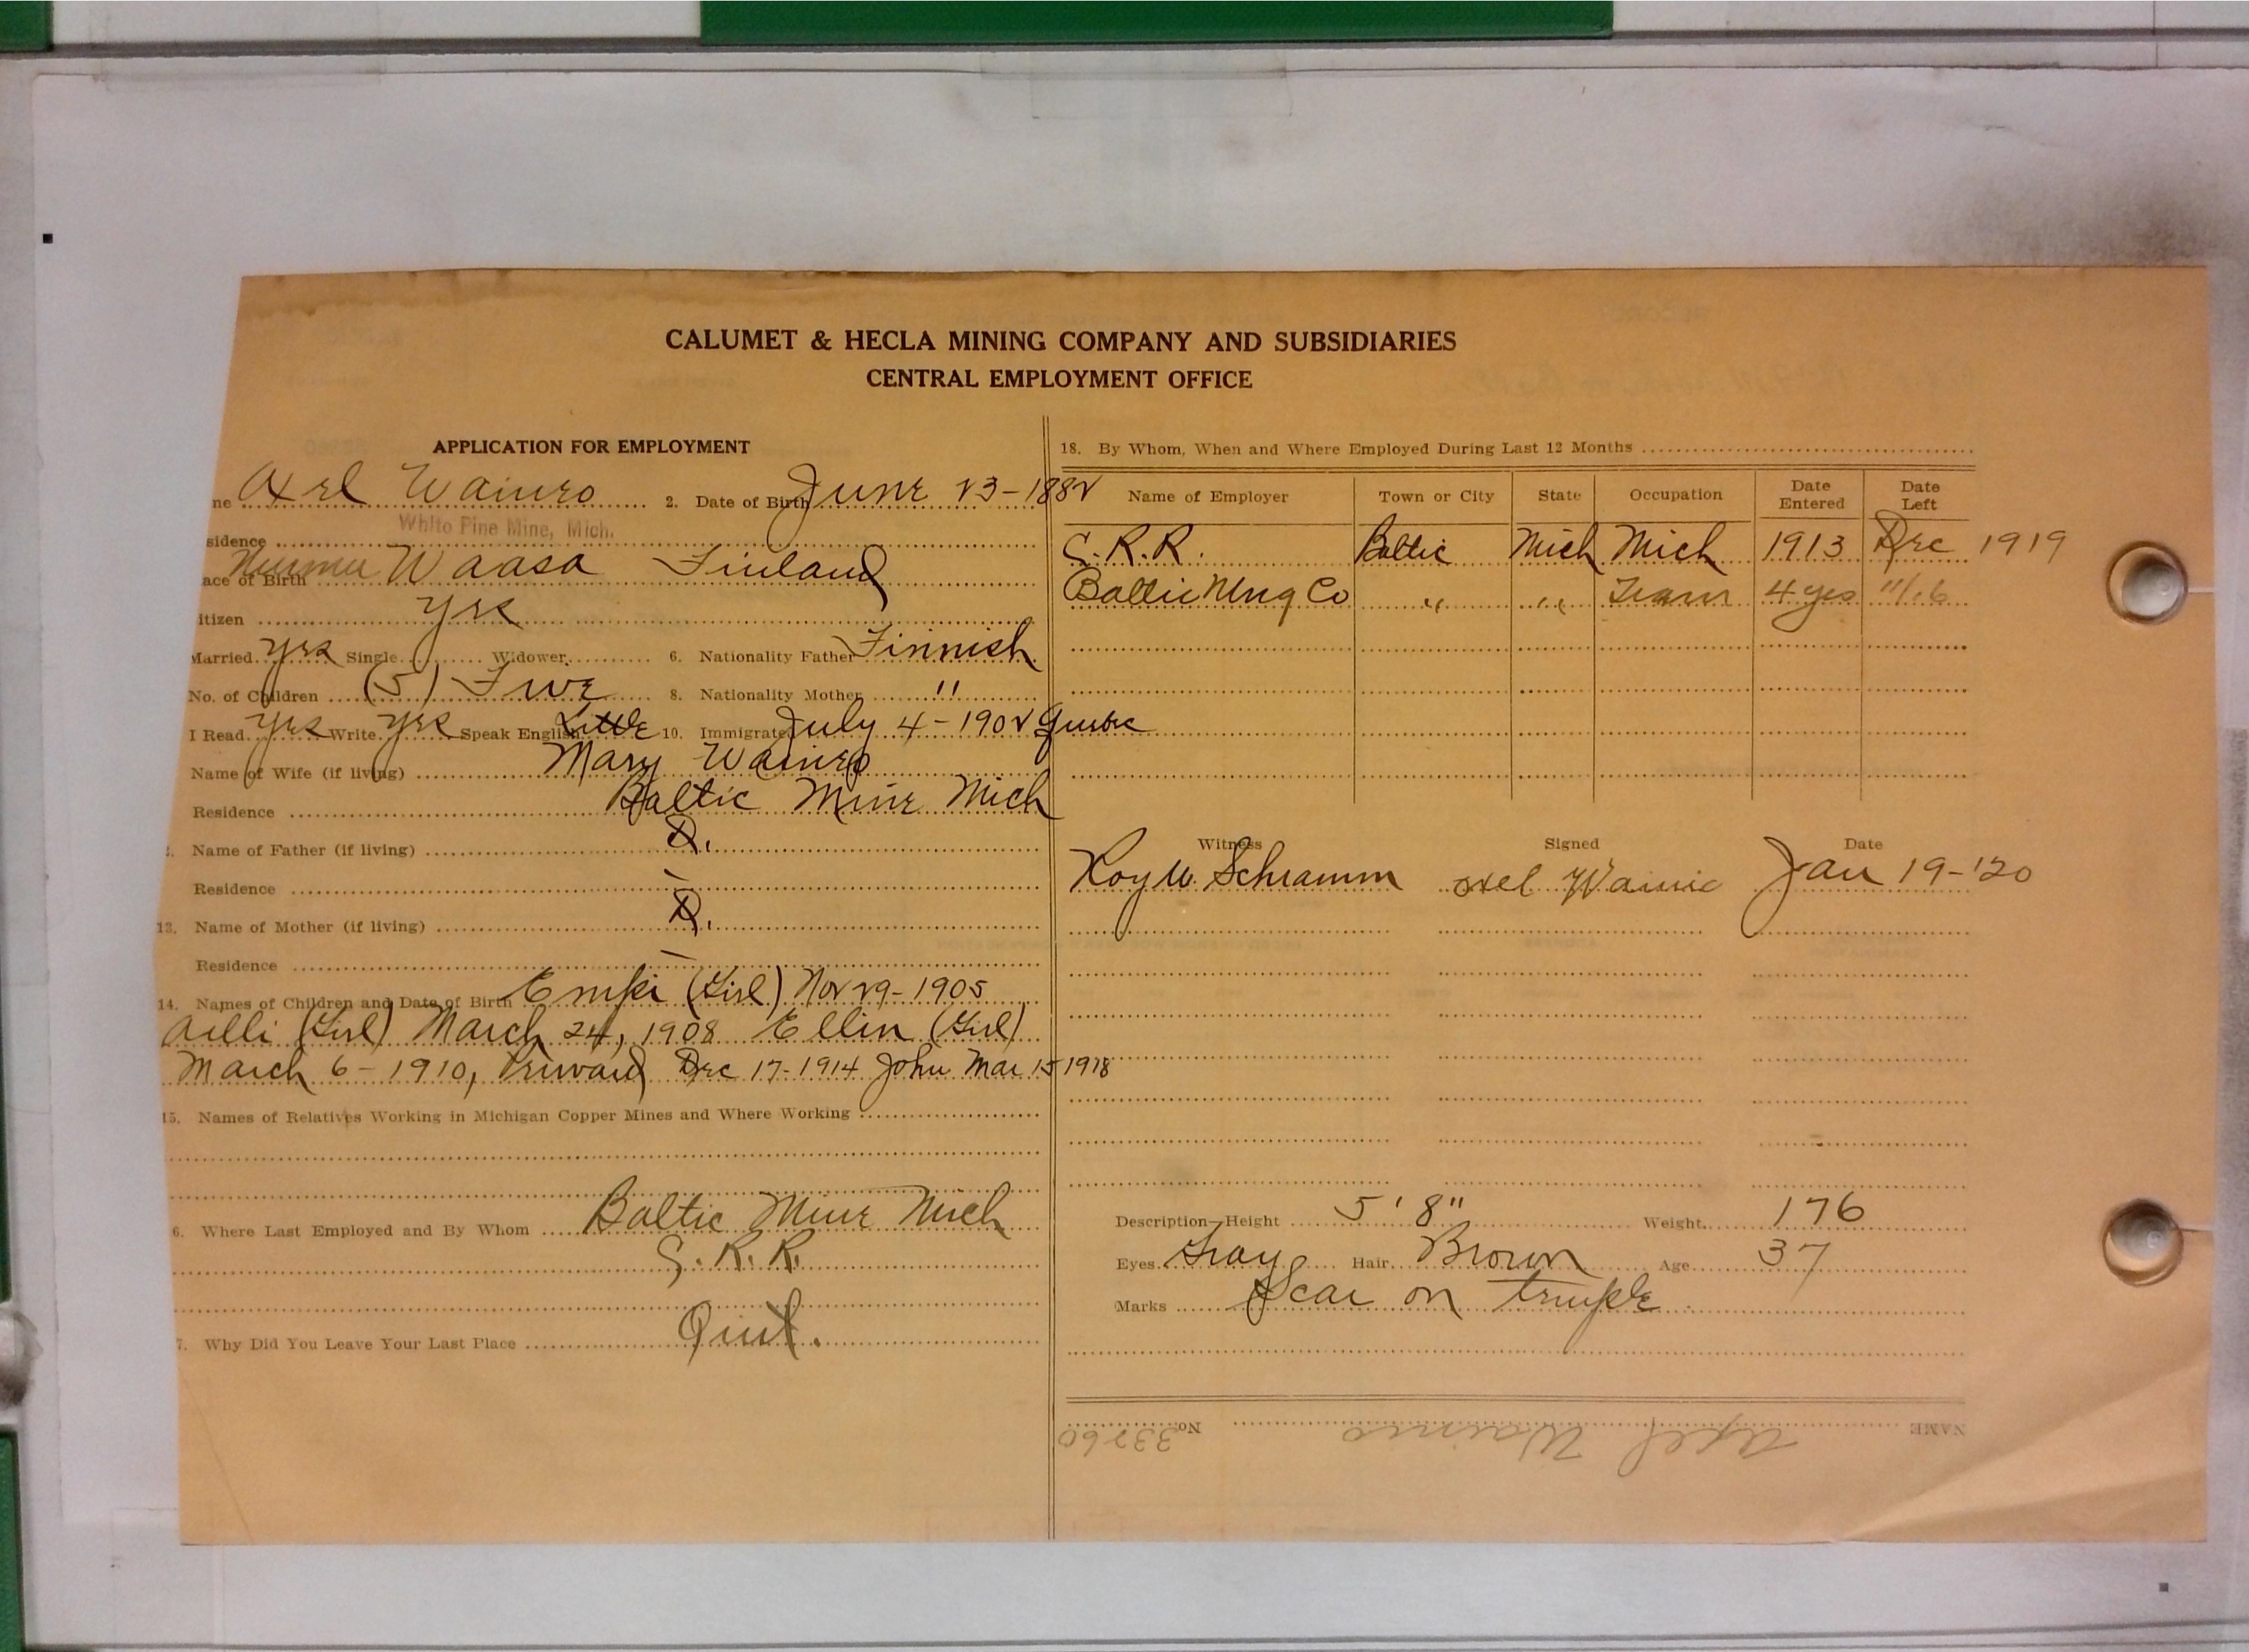 CALUMET & HECLA MINING COMPANY AND SUBSIDIARIES
CENTRAL EMPLOYMENT OFFICE
APPLICATION FOR EMPLOYMENT
ne Axel Wainio 2. Date of Birth June 23-1882
White Pine Mine, Mich.
sidence
ace of Birth Waasa Finland
itizen yes
Married yes Single Widower 6. Nationality Father Finnish
No. of Children (5) Five 8. Nationality Mother "
I Read yes Write yes Speak English Little 10. Immigrate July 4-1902 Quebec
Name of Wife (if living) Mary Wainio
Residence Baltic Mine Mich
2. Name of Father (if living) D.
Residence –
13. Name of Mother (if living) D.
Residence –
14. Names of Children and Date of Birth (Girl) Nov 29-1905
Aelli (Girl) March 24, 1908 Ellin (Girl)
March 6-1910, Dec 17-1914 John Mar 15 1918
15. Names of Relatives Working in Michigan Copper Mines and Where Working
6. Where Last Employed and By Whom Baltic Mine Mich
S. R. R.
7. Why Did You Leave Your Last Place Quit.
18. By Whom, When and Where Employed During Last 12 Months
Name of Employer Town or City State Occupation Date Entered Date Left
S. R. R. Baltic Mich Mich 1913 Dec 1919
Baltic Mng Co " " 4 yes
Witness Signed Date
Roy W. Schramm axel Wainio Jan 19-'20
Description—Height 5' 8" Weight 176
Eyes Gray Hair Brown Age 37
Marks Scar on temple
NAME Axel Wainio No. 33760